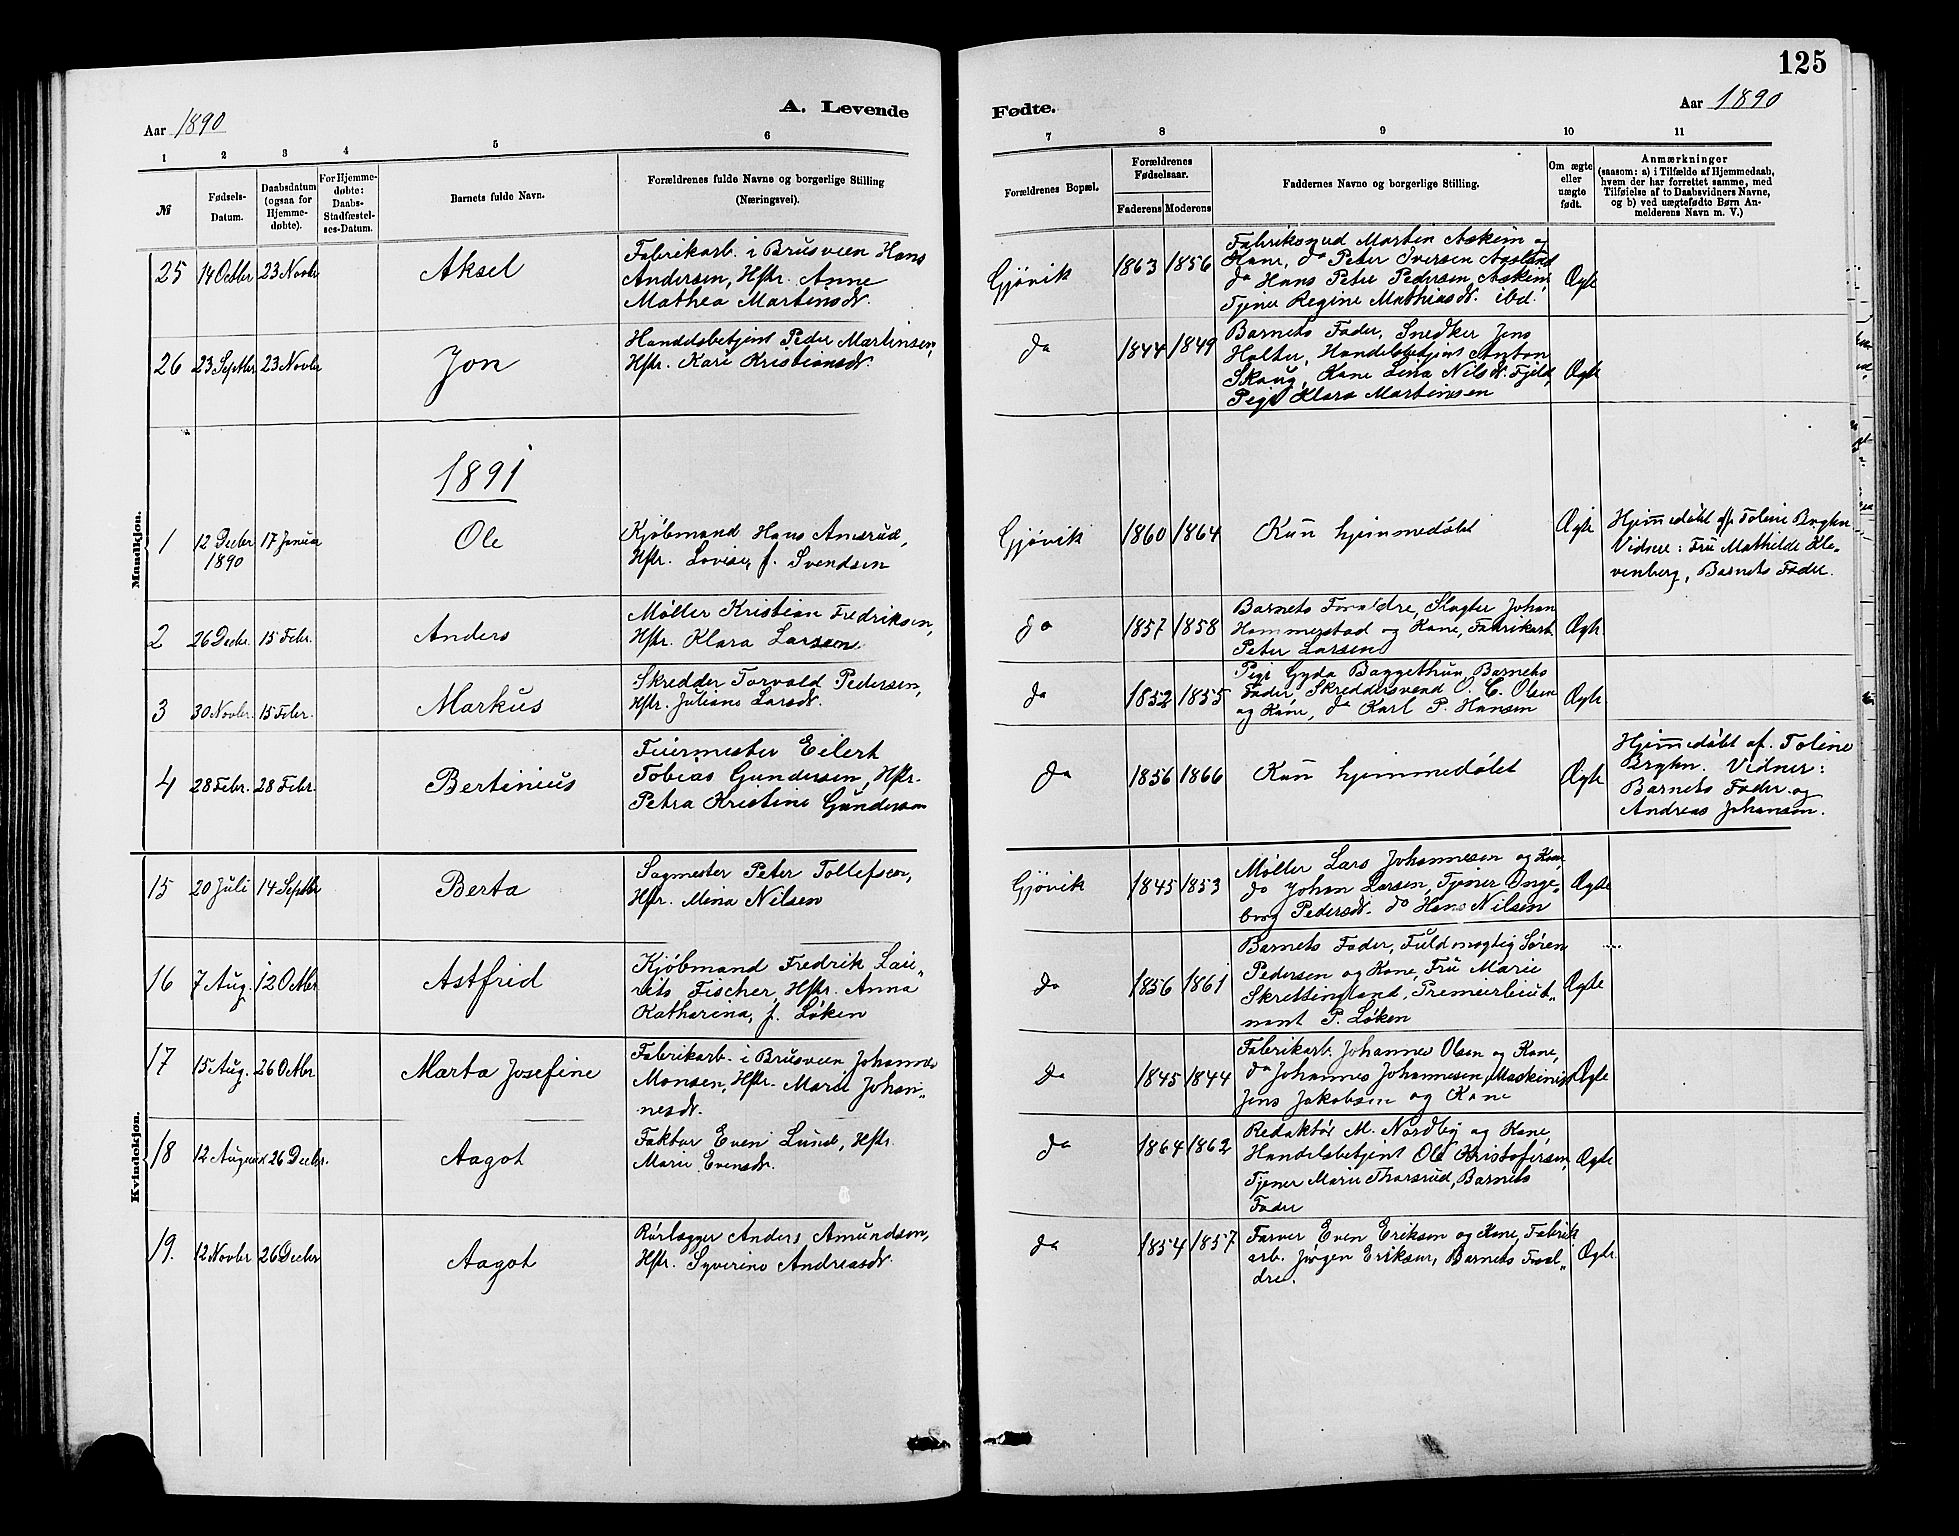 125
Aar 1890
A. Levende
Fødte.
Aar 1890
1 2 3 4 5 6
7 8 9 10 11
№
Fødsels-
Datum.
Daabsdatum
(ogsaa for
Hjemme-
døbte).
For Hjemme-
døbte:
Daabs-
Stadfæstel-
ses-Datum.
Barnets fulde Navn.
Forældrenes fulde Navne og borgerlige Stilling
(Næringsvei).
Forældrenes Bopæl.
Forældrenes
Fødselsaar.
Faderens Moderens
Faddernes Navne og borgerlige Stilling.
Om ægte
eller
uægte
født.
Anmærkninger
(saasom: a) i Tilfælde af Hjemmedaab,
hvem der har forrettet samme, med
Tilføielse af to Daabsvidners Navne,
og b) ved uægtefødte Børn An-
melderens Navn m. V.)
Mandkjøn.
25 14 Octber 23 Novbr Aksel
Fabrikarb. i Brusveen Hans
Andersen, Hstr. Anne
Mathea Martinsdr.
Gjøvik 1863 1856
Marten Askim og
Kone, do Peter Iversen
do Hans Peter Pedersen Askim,
Tjener Regine Mathiasdr. ibd.
Ægte
26 23 Septbr 23 Novbr Jon
Handelsbetjent Peder Martinsen,
Hstr. Kari Kristiansdr.
do 1844 1849
Barnets Fader, Snedker Jens
Holter, Handelsbetjent Anton
Skaug, Kone Lina Nilsdr. Fjeld,
Pige Klara Martinsen
Ægte
1891
1 12 Decbr
1890
17 Januar Ole
Kjøbmand Hans Amerud,
Hstr. Lovise, f. Svendsen
Gjøvik 1860 1864 Kun hjemmedøbt Ægte
Hjemmedøbt af Toline Brghn.
Vidner: Fru Mathilde Kle-
venberg, Barnets Fader.
2 26 Decbr. 15 Febr. Anders
Møller Kristian Fredriksen,
Hstr. Klara Larsen
do 1857 1858
Barnets Forældre, Slagter Johan
Hammerstad og Kone, Fabrikarb.
Peter Larsen
Ægte
3 30 Novbr. 15 Febr. Markus
Skredder Torvald Pedersen,
Hstr. Juliane Larsdr.
do 1852 1855
Pige Gyda Baggethun, Barnets
Fader, Skreddersvend O. C. Olsen
og Kone, do Karl P. Hansen
Ægte
4 28 Febr. 28 Febr. Bertinius
Feiermester Eilert
Tobias Gundersen, Hstr.
Petra Kristine Gundersen
do 1856 1866 Kun hjemmedøbt Ægte
Hjemmedøbt af. Toline
Brghn. Vidner:
Barnets Fader og
Andreas Johansen.
Kvindekjøn.
15 20 Juli 14 Septbr Berta
Sagmester Peter Tollefsen,
Hstr. Mina Nilsen
Gjøvik 1845 1853
Møller Lars Johannesen og Kone,
do Johan Larsen, Tjener Inge-
borg Pedersdr. do Hans Nilsen
Ægte
16 7 Aug. 12 Octbr Astfrid
Kjøbmand Fredrik Lau-
rits Fischer, Hstr. Anna
Katharina, f. Løken
do 1856 1861
Barnets Fader, Fuldmægtig Søren
Pedersen og Kone, Fru Marie
Skrettingland, Premierlieut-
nant P. Løken
Ægte
17 15 Aug. 26 Octbr Marta Josefine
Fabrikarb. i Brusveen Johannes
Monsen, Hstr. Marie Johan-
nesdr.
do 1845 1844
Fabrikarb. Johannes Olsen og Kone,
do Johannes Johannesen, Maskinist
Jens Jakobsen og Kone
Ægte
18 12 August 26 Decbr. Aagot
Faktor Even Lund, Hstr.
Marie Evensdr.
do 1864 1862
Redaktør M. Nordby og Kone,
Handelsbetjent Ole Kristofersen,
Tjener Marie Thorsrud, Barnets
Fader
Ægte
19. 12 Novbr 26 Decbr Aagot
Rørlægger Anders Amundsen,
Hstr. Syverine Andreasdr.
do 1854 1857
Farver Even Eriksen og Kone, Fabrik
arb. Jørgen Eriksen, Barnets Foræl-
dre.
Ægte